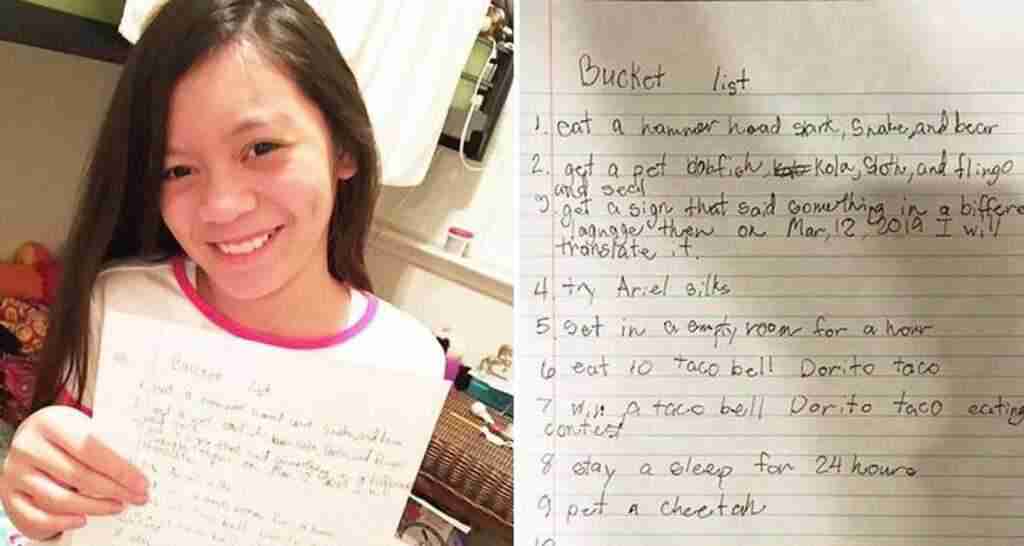 Bucket list
Bucket list
1. eat a hammer head sark, Snake, and bear
2. get a pet blobfish, Kola, Sloth, and flingo
and seal
3. get a sign that said something in a biffere
laangge then on Mar, 12, 2019 I will
translate it.
4 try Ariel silks
5 set in a empty room for a hour
6 eat 10 taco bell Dorito taco
7 win a taco bell Dorito taco eating
contest
8 stay a sleep for 24 hours
9 pet a cheetah
10